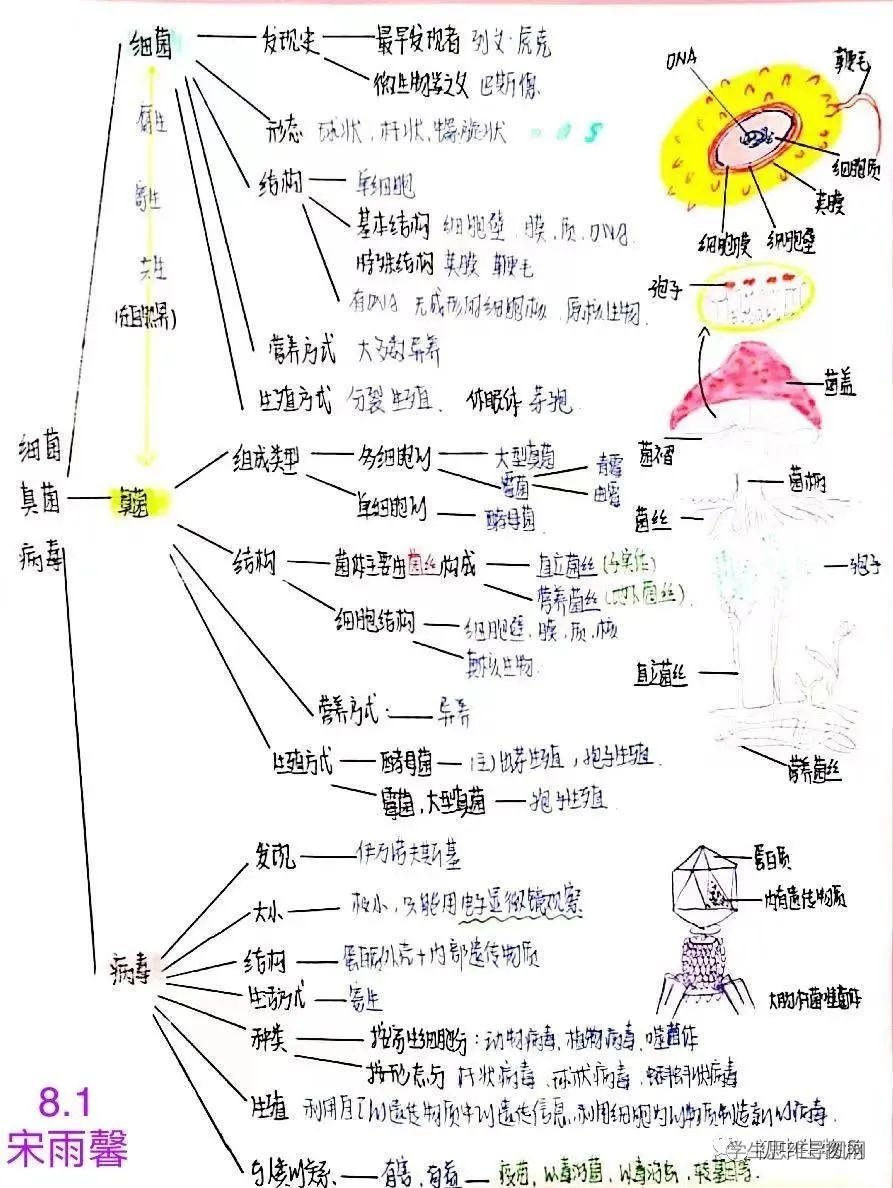 细菌 发现史 最早发现者 列文·虎克
微生物学之父 巴斯德
形态 球状、杆状、螺旋状
结构 单细胞
基本结构 细胞壁、膜、质、DNA
特殊结构 荚膜 鞭毛
有DNA 无成形的细胞核 原核生物
营养方式 大多数异养
生殖方式 分裂生殖 休眠体 芽孢
腐生
寄生
共生
(在自然界)
DNA
鞭毛
细胞质
荚膜
细胞膜 细胞壁
孢子
菌盖
菌褶
菌柄
菌丝
孢子
直立菌丝
营养菌丝
细菌
真菌
病毒
真菌 组成类型 多细胞的 大型真菌
霉菌 青霉
曲霉
单细胞的 酵母菌
结构 菌体主要由菌丝构成 直立菌丝(子实体)
营养菌丝(地下菌丝)
细胞结构 细胞壁、膜、质、核
真核生物
营养方式 异养
生殖方式 酵母菌 出芽生殖,孢子生殖
霉菌,大型真菌 孢子生殖
病毒 发现 伊万诺夫斯基
大小 极小,只能用电子显微镜观察
结构 蛋白质外壳+内部遗传物质
生活方式 寄生
种类 按寄生细胞分:动物病毒,植物病毒,噬菌体
按形态分 杆状病毒、球状病毒、蝌蚪状病毒
生殖 利用自己的遗传物质中的遗传信息,利用细胞内的物质制造新的病毒.
与人类的关系 有害,有益 疫苗,以毒治菌,以毒治虫,转基因等.
蛋白质
内有遗传物质
大肠杆菌噬菌体
8.1
宋雨馨